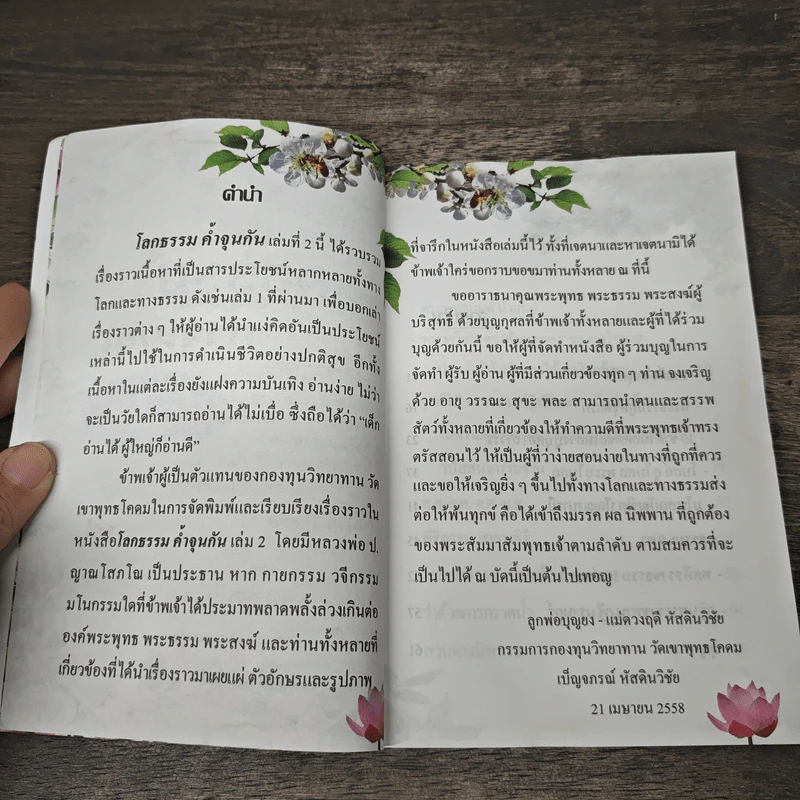 คำนำ
โลกธรรม ค้ำจุนกัน เล่มที่ 2 นี้ ได้รวบรวม
เรื่องราวเนื้อหาที่เป็นสารประโยชน์หลากหลายทั้งทาง
โลกและทางธรรม ดังเช่นเล่ม 1 ที่ผ่านมา เพื่อบอกเล่า
เรื่องราวต่าง ๆ ให้ผู้อ่านได้นำแง่คิดอันเป็นประโยชน์
เหล่านี้ไปใช้ในการดำเนินชีวิตอย่างปกติสุข อีกทั้ง
เนื้อหาในแต่ละเรื่องยังแฝงความบันเทิง อ่านง่าย ไม่ว่า
จะเป็นวัยใดก็สามารถอ่านได้ไม่เบื่อ ซึ่งถือได้ว่า “เด็ก
อ่านได้ ผู้ใหญ่ก็อ่านดี”
ข้าพเจ้าผู้เป็นตัวแทนของกองทุนวิทยาทาน วัด
เขาพุทธโคดมในการจัดพิมพ์และเรียบเรียงเรื่องราวใน
หนังสือโลกธรรม ค้ำจุนกัน เล่ม 2 โดยมีหลวงพ่อ ป.
ญาณโสภโณ เป็นประธาน หาก กายกรรม วจีกรรม
มโนกรรมใดที่ข้าพเจ้าได้ประมาทพลาดพลั้งล่วงเกินต่อ
องค์พระพุทธ พระธรรม พระสงฆ์ และท่านทั้งหลายที่
เกี่ยวข้องที่ได้นำเรื่องราวมาเผยแผ่ ตัวอักษรและรูปภาพ
ที่จารึกในหนังสือเล่มนี้ไว้ ทั้งที่เจตนาและหาเจตนามิได้
ข้าพเจ้าใคร่ขอกราบขอขมาท่านทั้งหลาย ณ ที่นี้
ขออาราธนาคุณพระพุทธ พระธรรม พระสงฆ์ผู้
บริสุทธิ์ ด้วยบุญกุศลที่ข้าพเจ้าทั้งหลายและผู้ที่ได้ร่วม
บุญด้วยกันนี้ ขอให้ผู้ที่จัดทำหนังสือ ผู้ร่วมบุญในการ
จัดทำ ผู้รับ ผู้อ่าน ผู้ที่มีส่วนเกี่ยวข้องทุก ๆ ท่าน จงเจริญ
ด้วย อายุ วรรณะ สุขะ พละ สามารถนำตนและสรรพ
สัตว์ทั้งหลายที่เกี่ยวข้องให้ทำความดีที่พระพุทธเจ้าทรง
ตรัสสอนไว้ ให้เป็นผู้ที่ว่าง่ายสอนง่ายในทางที่ถูกที่ควร
และขอให้เจริญยิ่ง ๆ ขึ้นไปทั้งทางโลกและทางธรรมส่ง
ต่อให้พ้นทุกข์ คือได้เข้าถึงมรรค ผล นิพพาน ที่ถูกต้อง
ของพระสัมมาสัมพุทธเจ้าตามลำดับ ตามสมควรที่จะ
เป็นไปได้ ณ บัดนี้เป็นต้นไปเทอญ
ลูกพ่อบุญยง - แม่ดวงฤดี หัสดินวิชัย
กรรมการกองทุนวิทยาทาน วัดเขาพุทธโคดม
เบ็ญจภรณ์ หัสดินวิชัย
21 เมษายน 2558